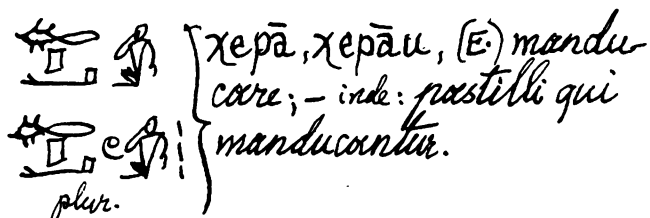 χepā, χepāu, (E.) mandu-
care; – inde: pastilli qui
manducantur.
plur.